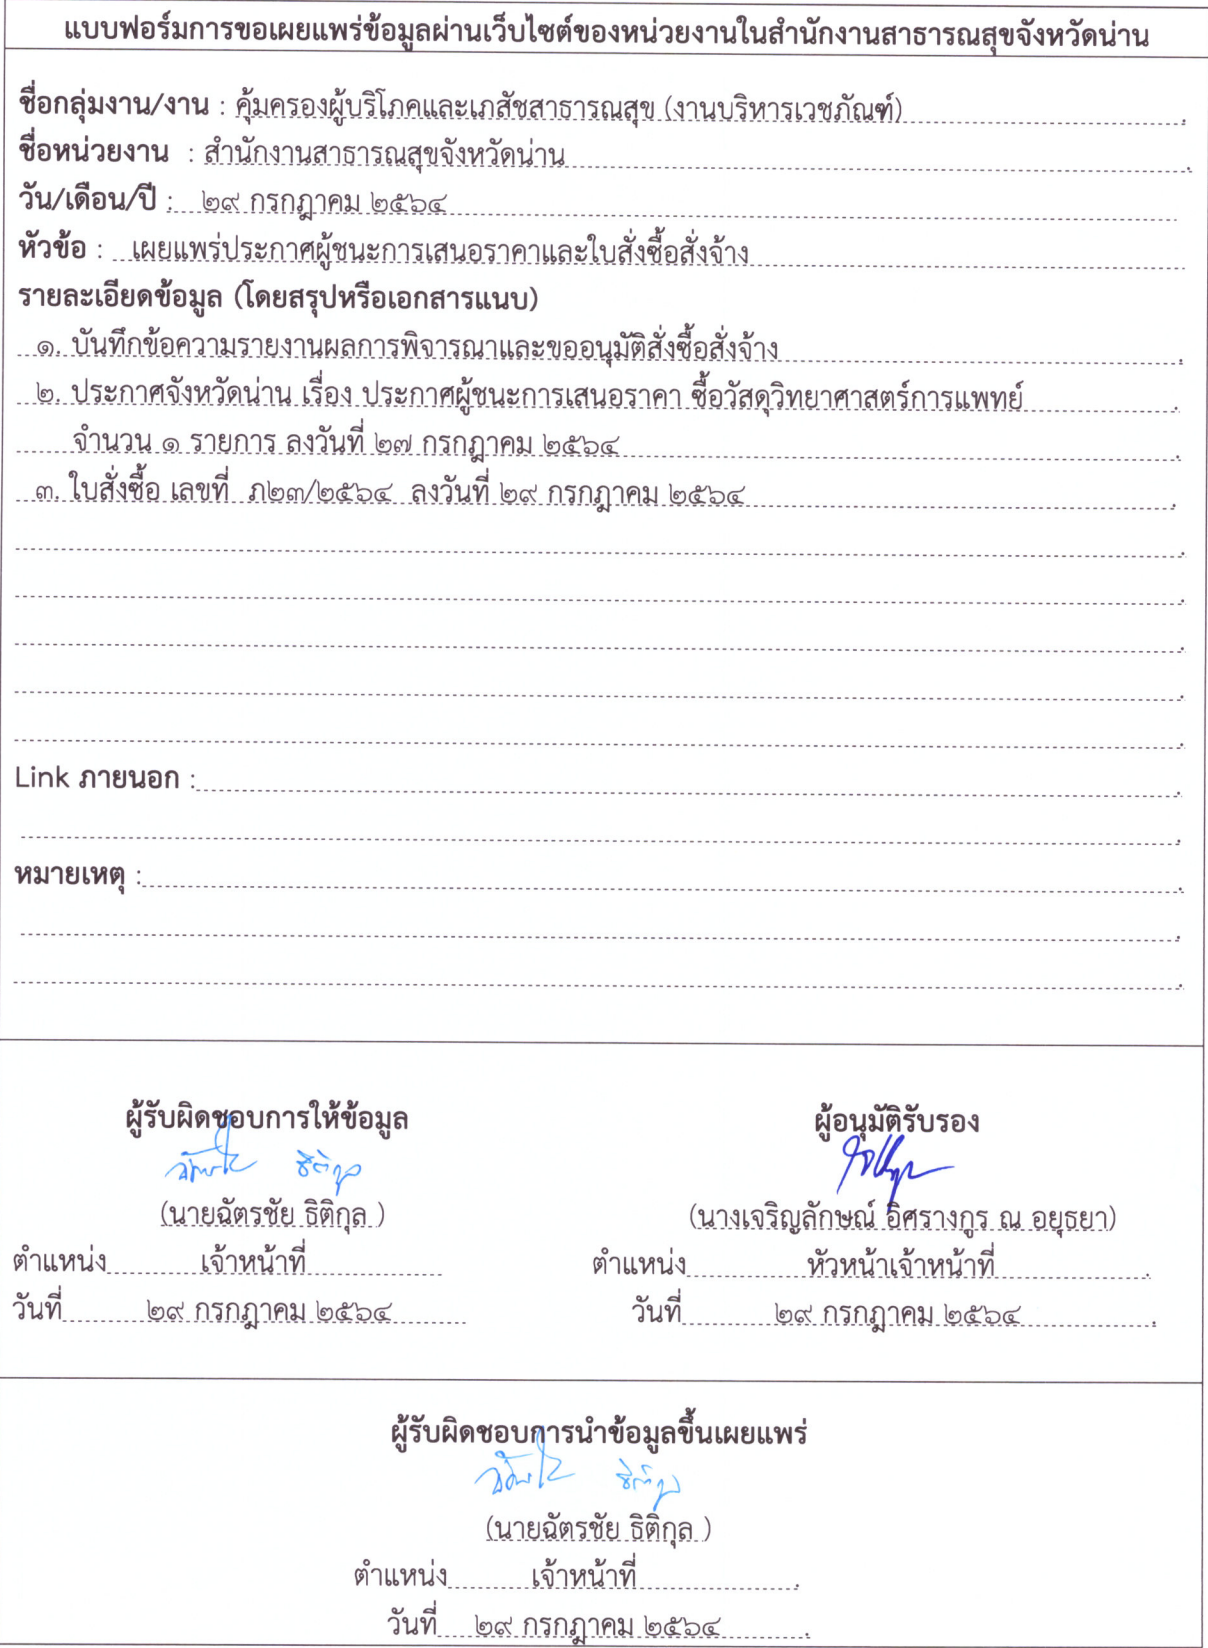 แบบฟอร์มการขอเผยแพร่ข้อมูลผ่านเว็บไซต์ของหน่วยงานในสำนักงานสาธารณสุขจังหวัดน่าน
ชื่อกลุ่มงาน/งาน : คุ้มครองผู้บริโภคและเภสัชสาธารณสุข (งานบริหารเวชภัณฑ์)
ชื่อหน่วยงาน : สำนักงานสาธารณสุขจังหวัดน่าน
วัน/เดือน/ปี : ๒๙ กรกฎาคม ๒๕๖๔
หัวข้อ : เผยแพร่ประกาศผู้ชนะการเสนอราคาและใบสั่งซื้อสั่งจ้าง
รายละเอียดข้อมูล (โดยสรุปหรือเอกสารแนบ)
๑. บันทึกข้อความรายงานผลการพิจารณาและขออนุมัติสั่งซื้อสั่งจ้าง
๒. ประกาศจังหวัดน่าน เรื่อง ประกาศผู้ชนะการเสนอราคา ซื้อวัสดุวิทยาศาสตร์การแพทย์
จำนวน ๑ รายการ ลงวันที่ ๒๗ กรกฎาคม ๒๕๖๔
๓. ใบสั่งซื้อ เลขที่ ภ๒๓/๒๕๖๔ ลงวันที่ ๒๙ กรกฎาคม ๒๕๖๔
Link ภายนอก :
หมายเหตุ :
ผู้รับผิดชอบการให้ข้อมูล
ฉัตรชัย ธิติกุล
(นายฉัตรชัย ธิติกุล )
ตำแหน่ง เจ้าหน้าที่
วันที่ ๒๙ กรกฎาคม ๒๕๖๔
ผู้อนุมัติรับรอง
(นางเจริญลักษณ์ อิศรางกูร ณ อยุธยา)
ตำแหน่ง หัวหน้าเจ้าหน้าที่
วันที่ ๒๙ กรกฎาคม ๒๕๖๔
ผู้รับผิดชอบการนำข้อมูลขึ้นเผยแพร่
ฉัตรชัย ธิติกุล
(นายฉัตรชัย ธิติกุล )
ตำแหน่ง เจ้าหน้าที่
วันที่ ๒๙ กรกฎาคม ๒๕๖๔